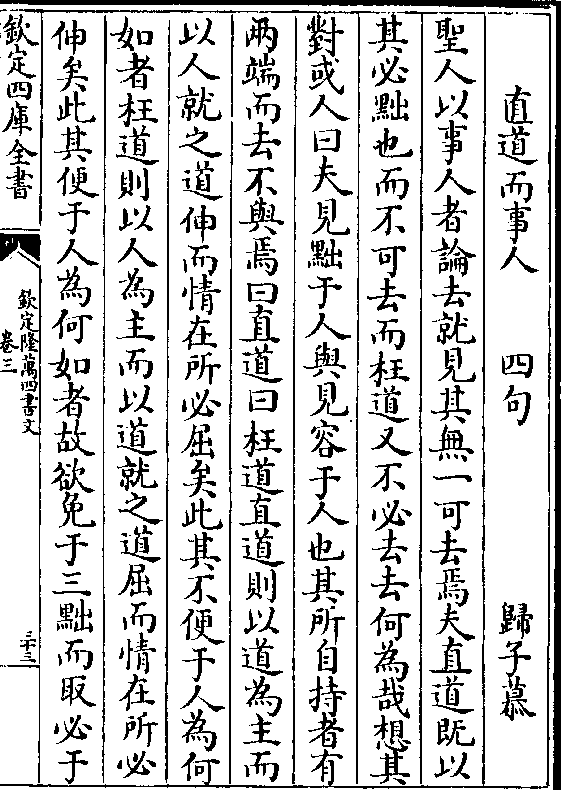 直道而事人　四句　歸子慕
聖人以事人者論去就見其無一可去焉夫直道既以
其必黜也而不可去而枉道又不必去去何為哉想其
對或人曰夫見黜于人與見容于人也其所自持者有
兩端而去不與焉曰直道曰枉道直道則以道為主而
以人就之道伸而情在所必屈矣此其不便于人為何
如者枉道則以人為主而以道就之道屈而情在所必
伸矣此其便于人為何如者故欲免于三黜而取必于
欽定四庫全書
欽定隆萬四書文
卷三
三十三